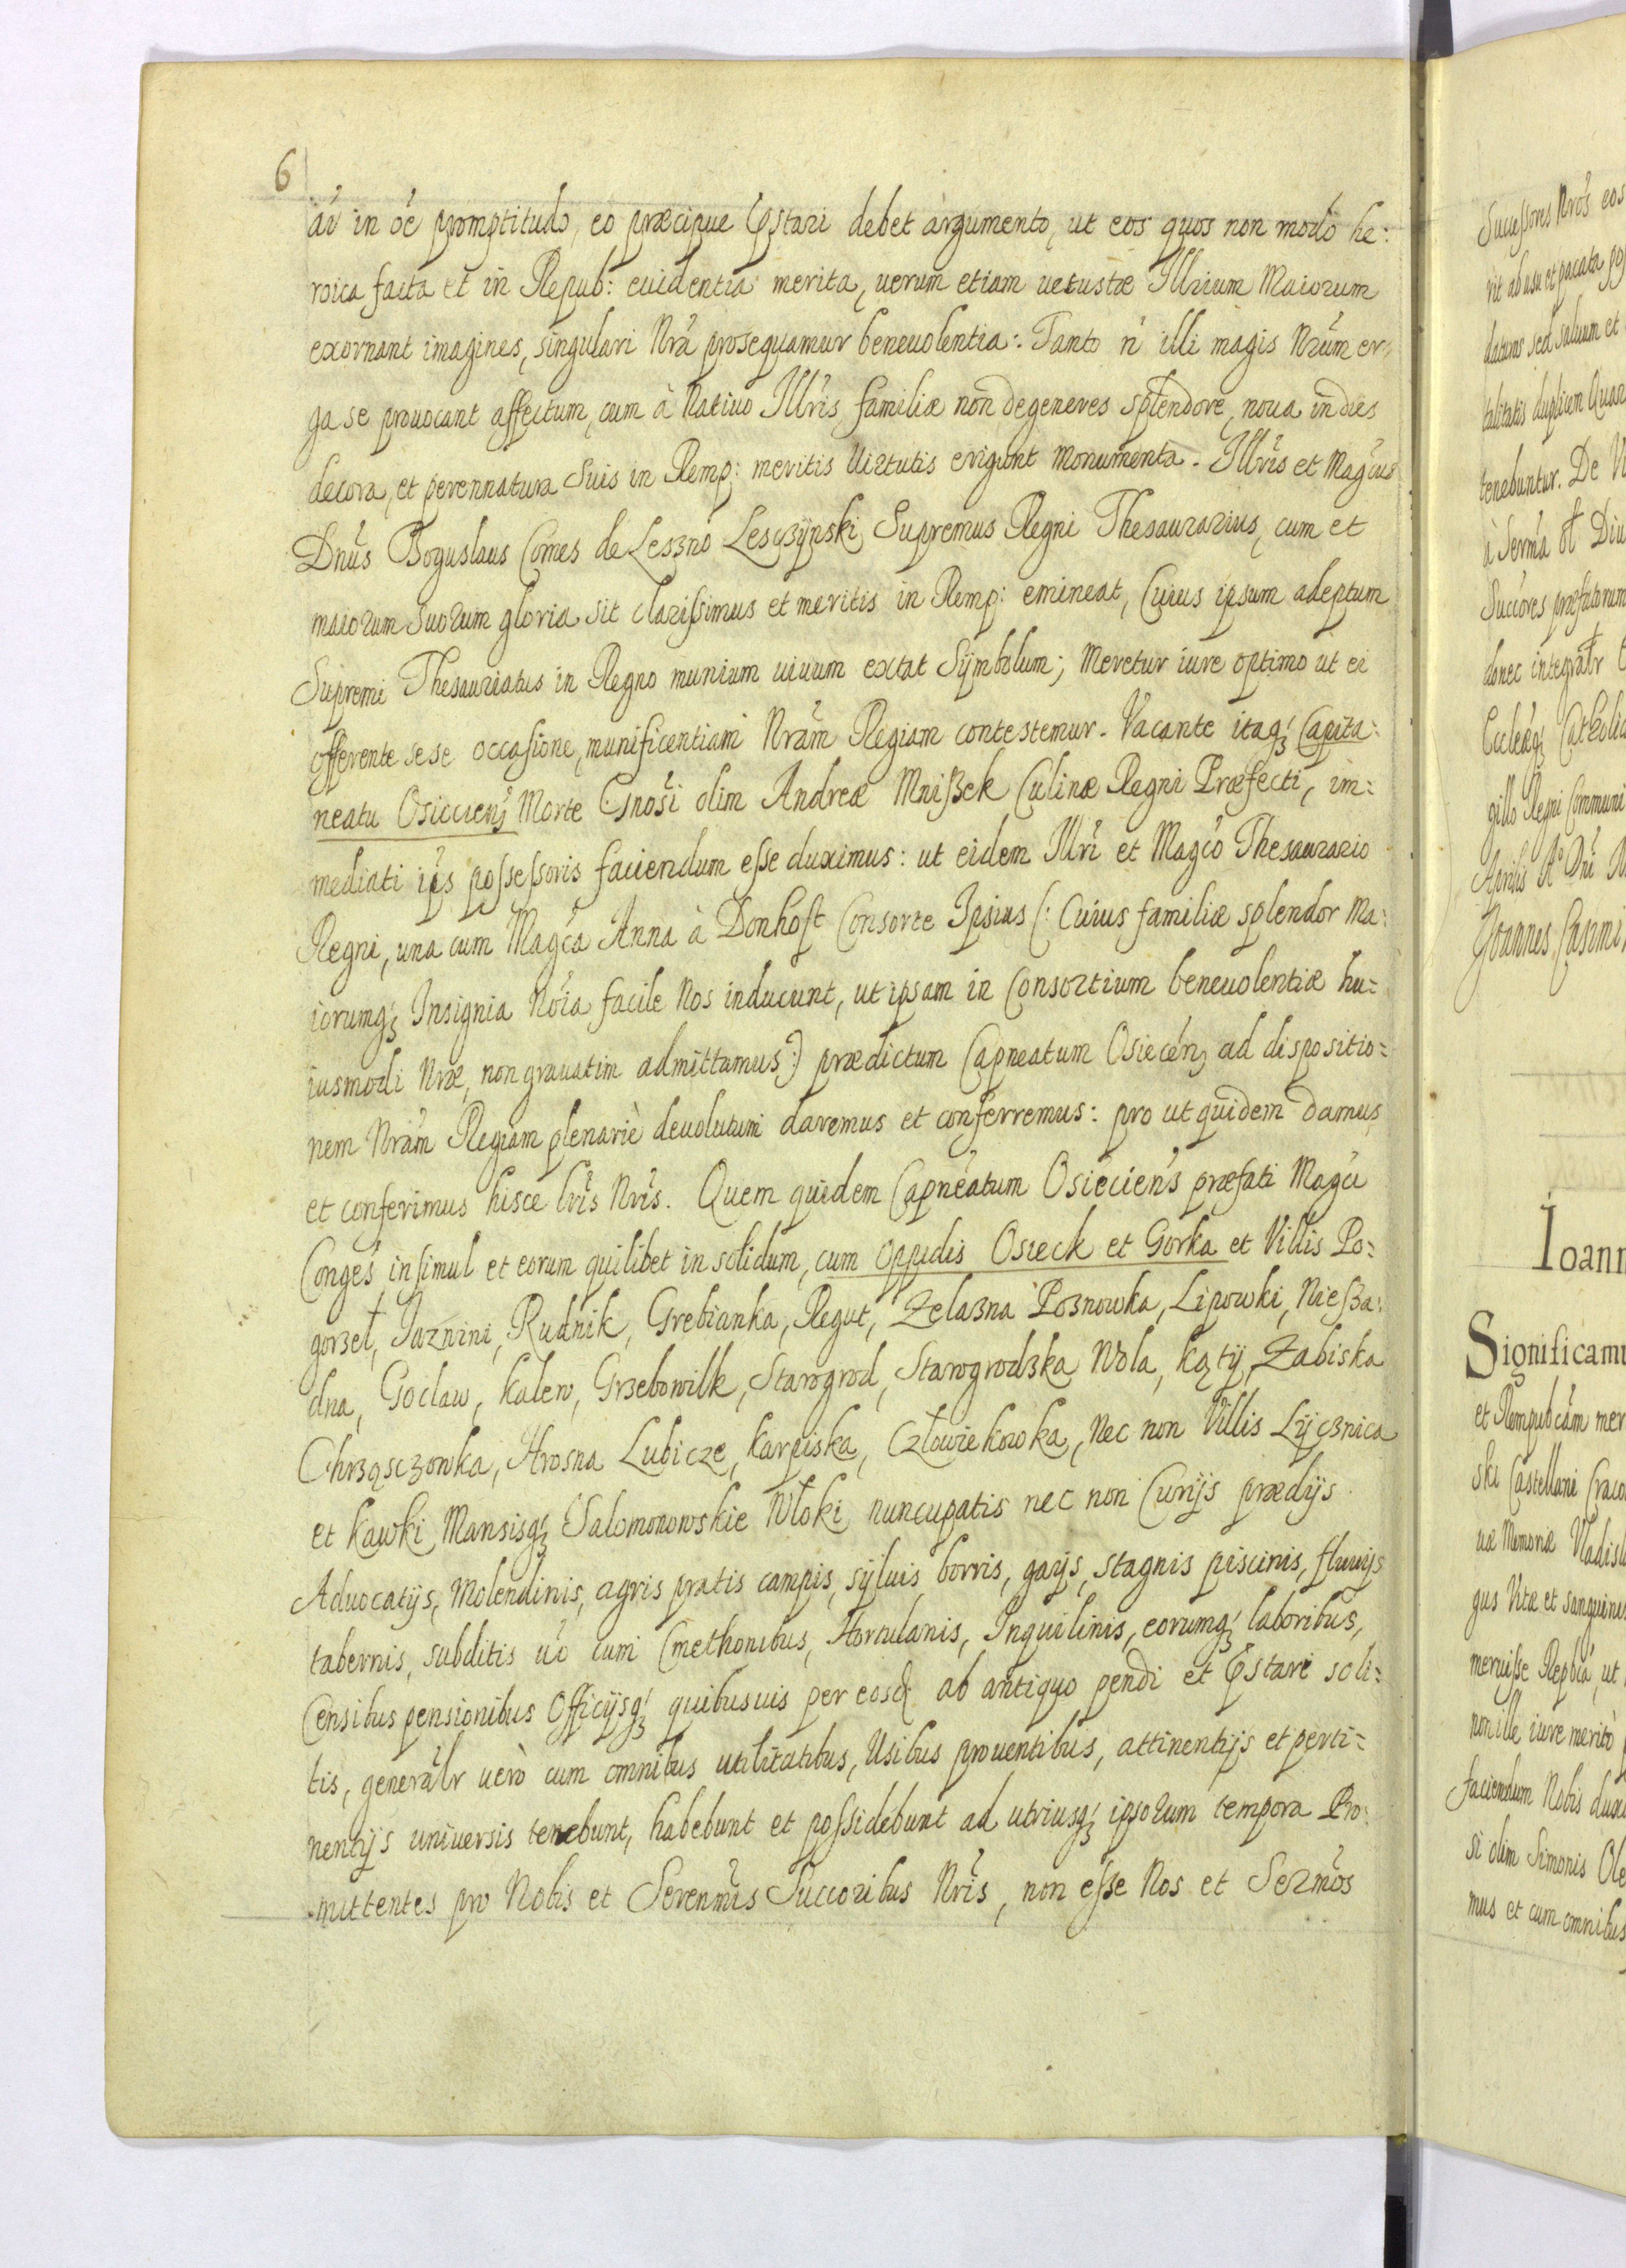 6
áú in óé promptitudo, eo præcipue ꝓstari debet argumento, ut eos quos non modo he:
roica facta et in Repub: euidentia merita, uerum etiam uetustæ Illrium Maiorum
exornant imagines, singulari Nrã prosequamur beneuolentia: Tanto n̓ illi magis Nrũm er=
ga se prouocant affectum, cum à Natiuo Illris familiæ non degeneres splendore, noua indies
decora, et perennatura suis in Remp: meritis Uirtutis erigunt Monumenta. Illris et Magcus
Dnũs Boguslaus Comes de Leszno Lesczÿnski Supremus Regni Thesaurarius, cum et
maiorum suorum gloria sit clarissimus et meritis in Remp: emineat, Cuius ipsum adeptum
Supremi Thesauriatus in Regno munium uiuum extat Sÿmbolum; Meretur iure optimo ut ei
offerente sese occasione, munificentiam Nrãm Regiam contestemur. Vacante itaqꝫ Capita:
neatu Osiccienꝫ Morte Gnosi olim Andreæ Mniszek Culinæ Regni Præfecti, im=
mediati ips possessoris faciendum esse duximus: ut eidem Illri et Magco Thesaurario
Regni, una cum Magca Anna à Donhoft Consorte Ipsius (: Cuius familiæ splendor Ma:
iorumqꝫ Insignia Noia facile Nos inducunt, ut ipsam in Consortium beneuolentiæ hu=
iusmodi Nræ, non grauatim admittamus :) prædictum Capneatum Osiecenꝫ ad dispositio=
nem Nrãm Regiam plenariè deuolutum daremus et conferremus: pro ut quidem damus
et conferimus hisce lris Nris. Quem quidem Capneatum Osieciens præfati Magci
Conges insimul et eorum quilibet in solidum, cum oppidis Osieck et Gorka et Villis Po=
gorzel, Jaznini, Rudnik, Grebianka, Regut, Zelazna Poznowka, Lipowki, Niesza:
dna, Goclaw, Kalew, Grzebowilk, Starogrod, Starogrodzka Wola, Kąty, Zabiska
Chrząsczowka, Hrosna Lubicze, Karpiska, Człowiekowka, Nec non Villis Lyçznica
et Kawki Mansisqꝫ Salomonowskie Włoki nuncupatis nec non Curijs prædijs
Aduocatijs, Molendinis, agris pratis campis, syluis borris, gajs, stagnis piscinis, fluuijs
tabernis, subditis uó cum Cmethonibus, Hortulanis, Inquilinis, eorumqꝫ laboribus,
Censibus pensionibus Officijsqꝫ quibusuis per eosd ab antiquo pendi et ꝓstari soli=
tis, generalr uerò cum omnibus utilitatibus, Usibus prouentibus, attinentijs et perti=
nentijs uniuersis tenebunt, habebunt et possidebunt ad utriusqꝫ ipsorum tempora Pro:
mittentes pro Nobis et Serenmis Succoribus Nris, non esse Nos et Sermos
Successores Nros eos
rit ab usu et pacata po
daturos sed saluum et
talitatis duplicem Quar
tenebuntur. De
à Serma Diu
Succores præfatorum
donec integralr
Eccleæqꝫ Catholic
gillo Regni Communi
Aprilis Ao Dni
Joannes Casimi
Ioann
Significamu
et Rempubcam mer
ski Castellani Craco
uæ Memoriæ Vladisl
gus Vitæ et sanguinis
meruisse Repbca, ut
non ille iure merito
faciendum Nobis dux
si olim Simonis Ole
mus et cum omnibus